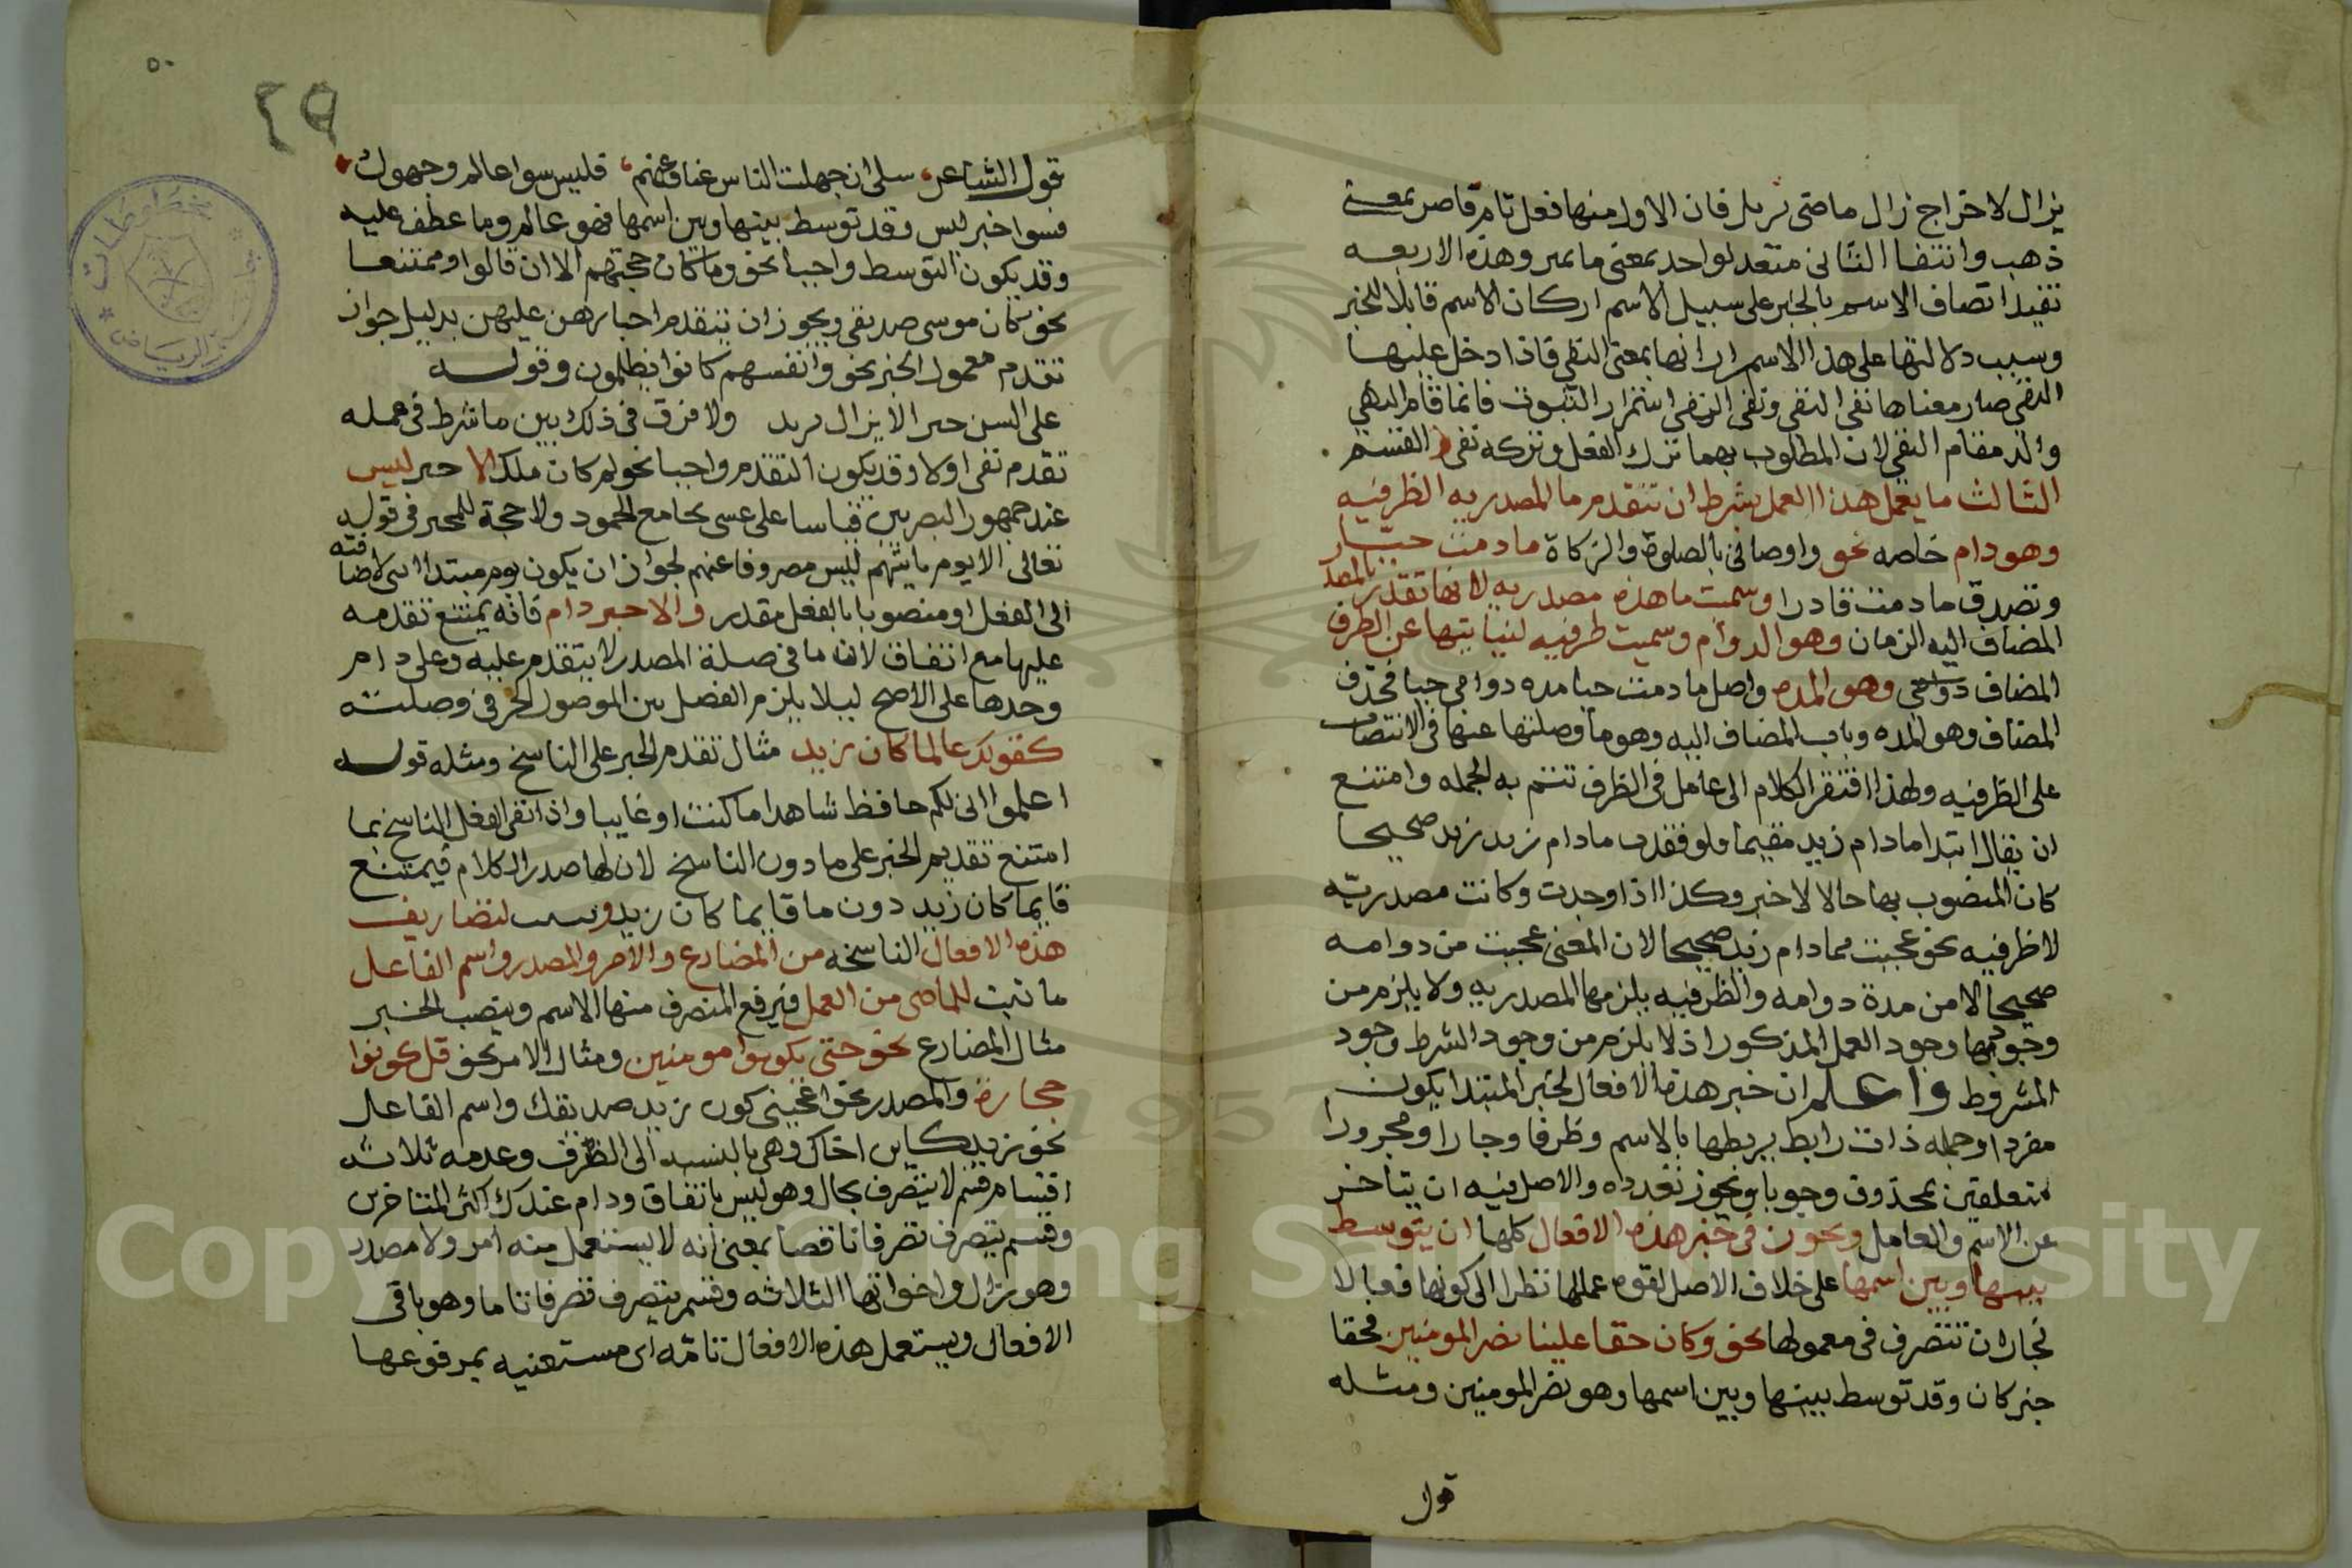 يزال لاخراج زال ماضي يزيل فان الاول منها فعل تام قاصر بمعنى
ذهب وانتفا الثاني متعد لواحد بمعنى ماز يميز وهذه الاربعه
تفيد اتصاف الاسم بالخبر على سبيل الاسمرار كان الاسم قابلا للخبر
وسبب دلالتها على هذا الاسمرار انها بمعنى النفي فاذا دخل عليها
النفي صار معناها نفي النفي ونفي النفي استمرار الثبوت فانما قام النهي
مقام النفي لان المطلوب بهما ترك الفعل وتركه نفي القسم
الثالث ما يعمل هذا العمل بشرط ان تتقدم ما المصدريه الظرفيه
وهو دام خاصه نحو واوصاني بالصلوة والزكاة ما دمت حيا
وتصدق ما دمت قادرا وسميت ما هذه مصدريه لانها تقدر بالمصدر
المضاف اليه الزمان وهو الدوام وسميت ظرفيه لنيابتها عن الظرف
المضاف وهو المده واصل ما دمت حيا مده دوامي حيا فحذف
المضاف وهو المده وناب المضاف اليه وهو ما وصلتها عنها في الانتصاب
على الظرفيه ولهذا افتقر الكلام الى عامل في الظرف تتم به الجمله وامتنع
ان يقال ابتدا مادام زيد مقيما ولو فقدت مادام زيد صحيحا
كان المنصوب بها حالا لا خبر وكذا اذا وجدت وكانت مصدريه
لا ظرفيه نحو عجبت مما دام زيد صحيحا لان المعنى عجبت من دوامه
صحيحا لا من مدة دوامه والظرفيه يلزمها المصدريه ولا يلزم من
وجودها وجود العمل المذكور اذ لا يلزم من وجود الشرط وجود
المشروط واعلم ان خبر هذه الافعال لخبر المبتدا يكون
مفردا وجمله ذات رابط يربطها بالاسم وظرفا وجارا ومجرورا
متعلقين بمحذوف وجوبا ويجوز تعدده والاصل فيه ان يتاخر
عن الاسم والعامل ويجوز في خبر هذه الافعال كلها ان يتوسط
بينها وبين اسمها على خلاف الاصل لقوه عملها نظرا الى كونها فعالا
فجاز ان تتصرف في معمولها نحو وكان حقا علينا نصر المومنين فحقا
خبر كان وقد توسط بينها وبين اسمها وهو نصر المومنين ومثله
قول
٥٠
٤٩
قول الشاعر سلي ان جهلت الناس عنا وعنهم فليس سوا عالم وجهول
فسوا خبر ليس وقد توسط بينها وبين اسمها فهو عالم وما عطف عليه
وقد يكون التوسط واجبا نحو وما كان حجتهم الا ان قالوا وممتنعا
نحو كان موسى صديقي ويجوز ان تتقدم اخبارهن عليهن بدليل جواز
تقدم معمول الخبر نحو وانفسهم كانوا يظلمون وقوله
على السن خيرا لا يزال يزيد ولا فرق في ذلك بين ما شرط في عمله
تقدم نفي اولا وقد يكون التقدم واجبا نحو لم كان ملك الا خبر ليس
عند جمهور البصريين قياسا على عسى بجامع الجمود ولا حجة للمجيز في قوله
تعالى الا يوم ياتيهم ليس مصروفا عنهم لجواز ان يكون يوم مبتدا بني لاضافته
الى الفعل او منصوبا بالفعل مقدر والا خبر دام فانه يمتنع تقدمه
عليها مع اتفاق لان ما في صلة المصدر لا يتقدم عليه وعلى دام
وحدها على الاصح ليلا يلزم الفصل بين الموصول الحرفي وصلته
كقولك عالما كان زيد مثال تقدم الخبر على الناسخ ومثله قوله
اعلموا اني لكم حافظ شاهدا ما كنت او غايبا واذا نفي الفعل الناسخ بما
امتنع تقديم الخبر على ما دون الناسخ لان لها صدر الكلام فيمتنع
قايما كان زيد دون ما قايما كان زيد ويثبت لتضاريف
هذه الافعال الناسخه من المضارع والامر والمصدر واسم الفاعل
ما ثبت للماضي من العمل فيرفع المتصرف منها الاسم وينصب الخبر
مثال المضارع نحو حتى يكونوا مومنين ومثال الامر نحو قل كونوا
حجارة والمصدر نحو اعجبني كون زيد صديقك واسم الفاعل
نحو زيد كاين اخاك وهي بالنسبه الى التصرف وعدمه ثلاثه
اقسام قسم لا يتصرف بحال وهو ليس باتفاق ودام عند اكثر المتاخرين
وقسم يتصرف تصرفا ناقصا بمعنى انه لا يستعمل منه امر ولا مصدر
وهو زال واخواتها الثلاثه وقسم يتصرف تصرفا تاما وهو باقي
الافعال ويستعمل هذه الافعال تامه اي مستغنيه بمرفوعها
Copyright © King Saud University
1957